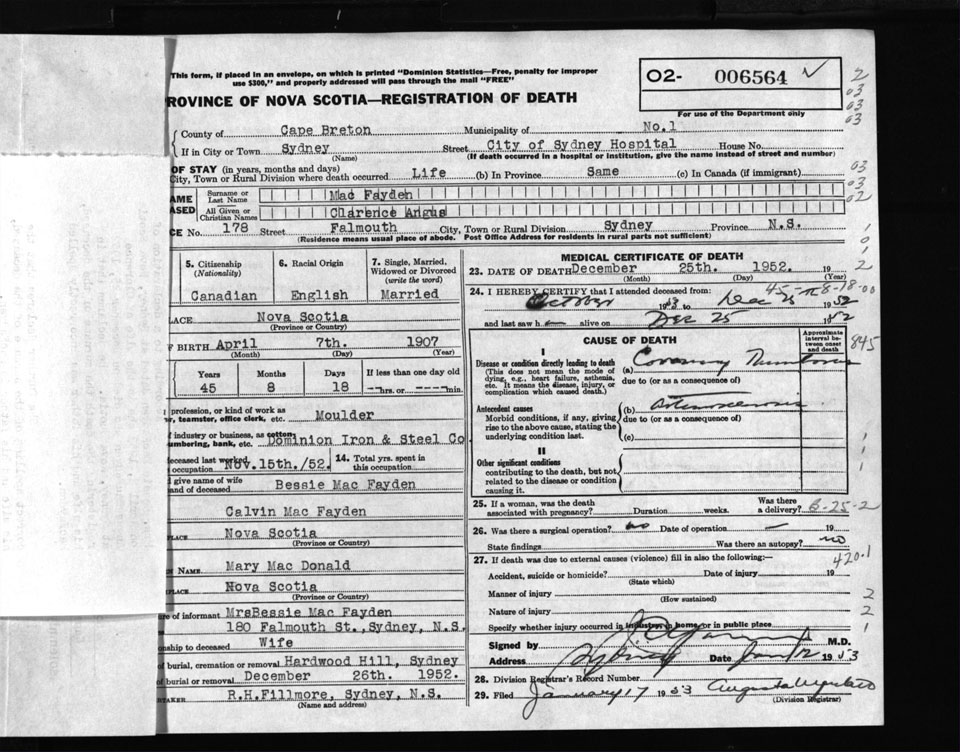 This form, if placed in an envelope, on which is printed "Dominion Statistics—Free, penalty for improper
use $300," and properly addressed will pass through the mail "FREE"
O2- 006564
ROVINCE OF NOVA SCOTIA—REGISTRATION OF DEATH
For use of the Department only
County of Cape Breton Municipality of No.1
If in City or Town Sydney Street City of Sydney Hospital House No.
(Name) (If death occurred in a hospital or institution, give the name instead of street and number)
OF STAY (in years, months and days)
City, Town or Rural Division where death occurred Life (b) In Province Same (c) In Canada (if immigrant)
AME Surname or Last Name Mac Fayden
ASED All Given or Christian Names Clarence Angus
CE No. 178 Street Falmouth City, Town or Rural Division Sydney Province N.S.
(Residence means usual place of abode. Post Office Address for residents in rural parts not sufficient)
5. Citizenship (Nationality) Canadian
6. Racial Origin English
7. Single, Married, Widowed or Divorced (write the word) Married
LACE Nova Scotia
(Province or Country)
F BIRTH April 7th. 1907
(Month) (Day) (Year)
Years Months Days If less than one day old
45 8 18 --hrs. or ----min.
profession, or kind of work as
r, teamster, office clerk, etc. Moulder
f industry or business, as cotton
umbering, bank, etc. Dominion Iron & Steel Co.
eceased last worked
occupation Nov.15th./52. 14. Total yrs. spent in this occupation
d give name of wife
and of deceased Bessie Mac Fayden
Calvin Mac Fayden
PLACE Nova Scotia
(Province or Country)
N NAME Mary Mac Donald
PLACE Nova Scotia
(Province or Country)
re of informant MrsBessie Mac Fayden
180 Falmouth St.,Sydney, N.S.
nship to deceased Wife
of burial, cremation or removal Hardwood Hill, Sydney
of burial or removal December 26th. 1952.
RTAKER R.H.Fillmore, Sydney, N.S.
(Name and address)
MEDICAL CERTIFICATE OF DEATH
23. DATE OF DEATH December 25th. 1952. 19
(Month) (Day) (Year)
24. I HEREBY CERTIFY that I attended deceased from:
October 19 to Dec 25 1952
and last saw h alive on Dec 25 1952
CAUSE OF DEATH
Approximate interval between onset and death
I
Disease or condition directly leading to death
(This does not mean the mode of dying, e.g., heart failure, asthenia, etc. It means the disease, injury, or complication which caused death.)
(a) Coronary Thrombosis
due to (or as a consequence of)
Antecedent causes
Morbid conditions, if any, giving rise to the above cause, stating the underlying condition last.
(b) Arteriosclerosis
due to (or as a consequence of)
(c)
II
Other significant conditions
contributing to the death, but not related to the disease or condition causing it.
845
25. If a woman, was the death associated with pregnancy? Duration weeks. Was there a delivery?
26. Was there a surgical operation? no Date of operation — 19
State findings Was there an autopsy? no
27. If death was due to external causes (violence) fill in also the following:— 420.1
Accident, suicide or homicide? Date of injury 19
(State which)
Manner of injury
(How sustained)
Nature of injury
Specify whether injury occurred in industry, in home, or in public place
Signed by M.D.
Address Sydney Date Jan 12 1953
28. Division Registrar's Record Number
29. Filed January 17 1953
(Division Registrar)